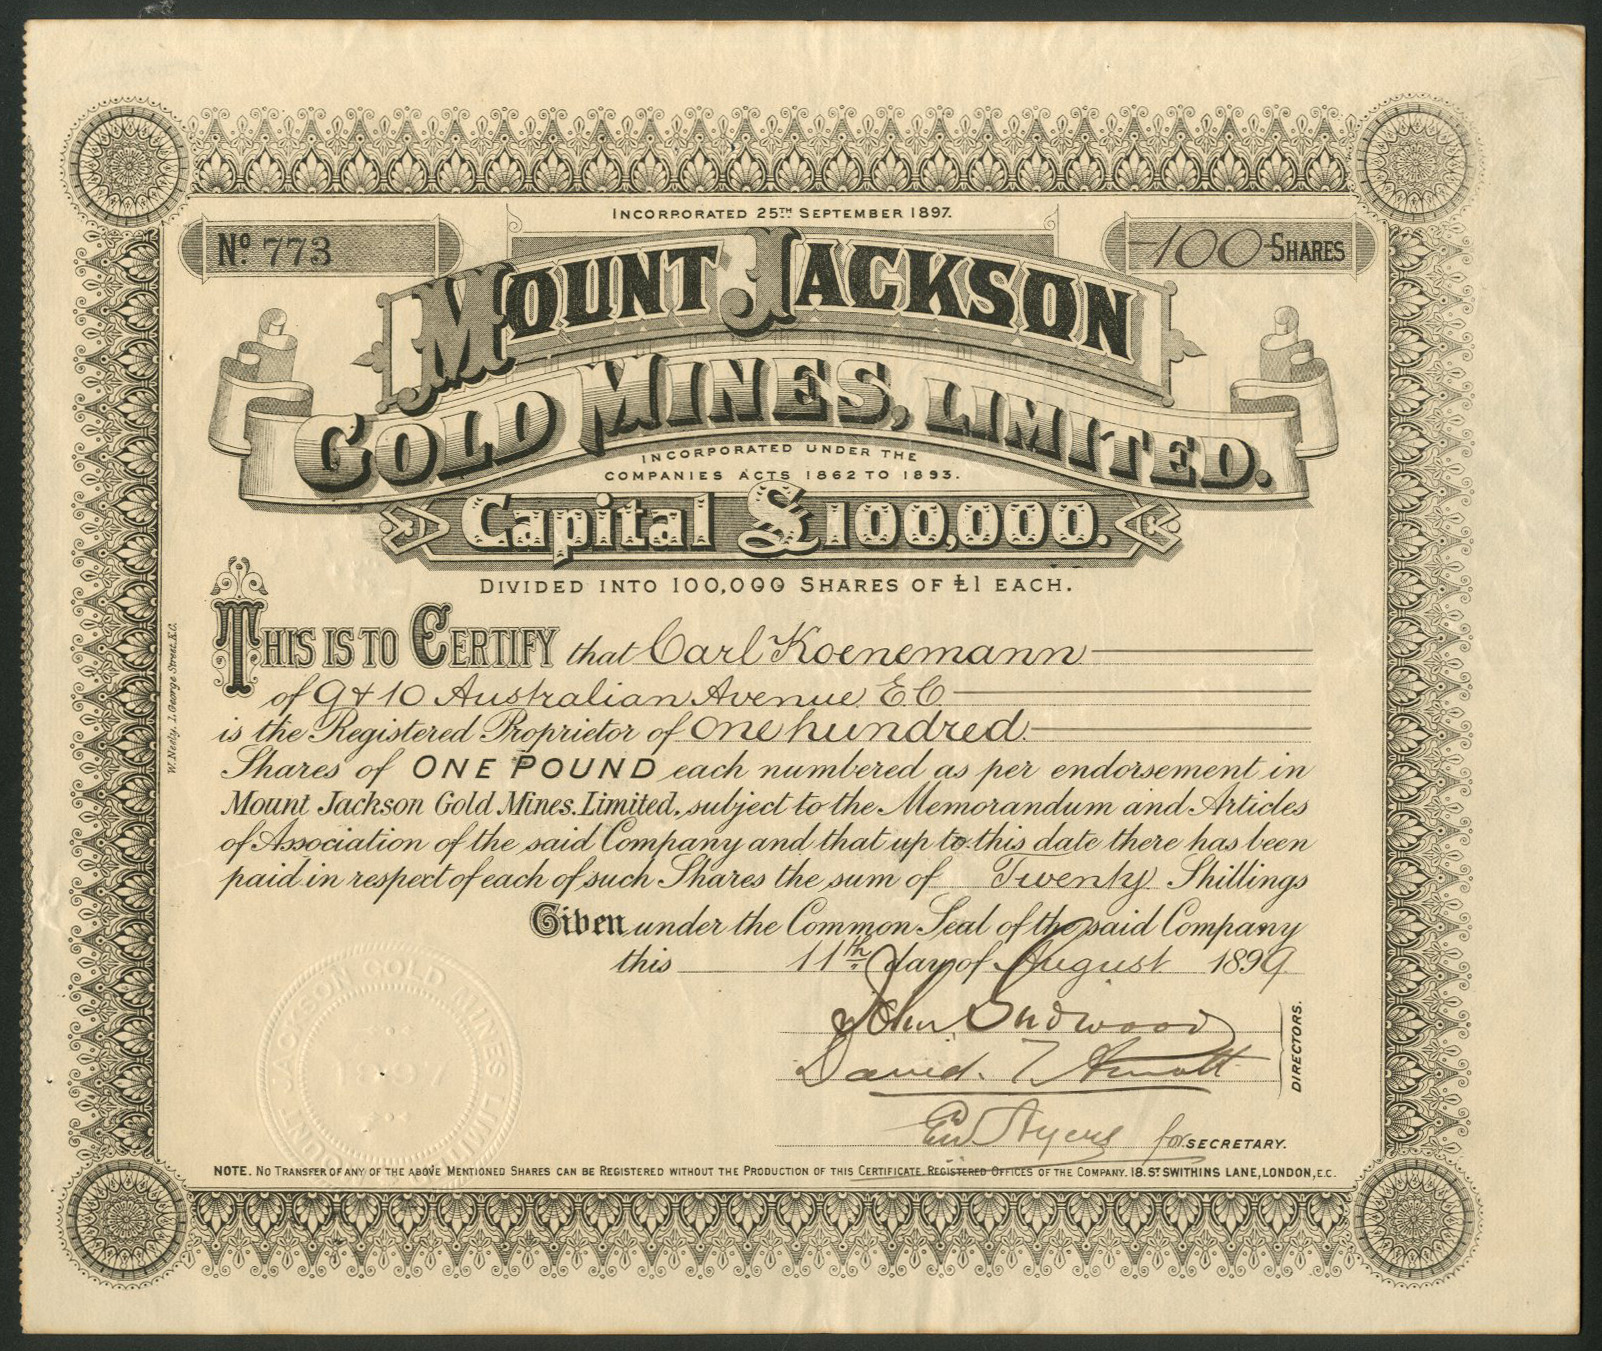 INCORPORATED 25TH SEPTEMBER 1897.
No. 773
100 SHARES
MOUNT JACKSON
GOLD MINES, LIMITED.
INCORPORATED UNDER THE
COMPANIES ACTS 1862 TO 1893.
Capital £100,000.
DIVIDED INTO 100,000 SHARES OF £1 EACH.
THIS IS TO CERTIFY that Carl Koenemann
of 9 & 10 Australian Avenue E C
is the Registered Proprietor of One hundred
Shares of ONE POUND each numbered as per endorsement in
Mount Jackson Gold Mines. Limited., subject to the Memorandum and Articles
of Association of the said Company and that up to this date there has been
paid in respect of each of such Shares the sum of Twenty Shillings
Given under the Common Seal of the said Company
this 11th day of August 1899
John
David. T
DIRECTORS.
Ayers for SECRETARY.
NOTE. NO TRANSFER OF ANY OF THE ABOVE MENTIONED SHARES CAN BE REGISTERED WITHOUT THE PRODUCTION OF THIS CERTIFICATE. REGISTERED OFFICES OF THE COMPANY. 18. ST SWITHINS LANE, LONDON, E.C.
W. Neely, 1. George Street. E.C.
MOUNT JACKSON GOLD MINES LIMITED
1897